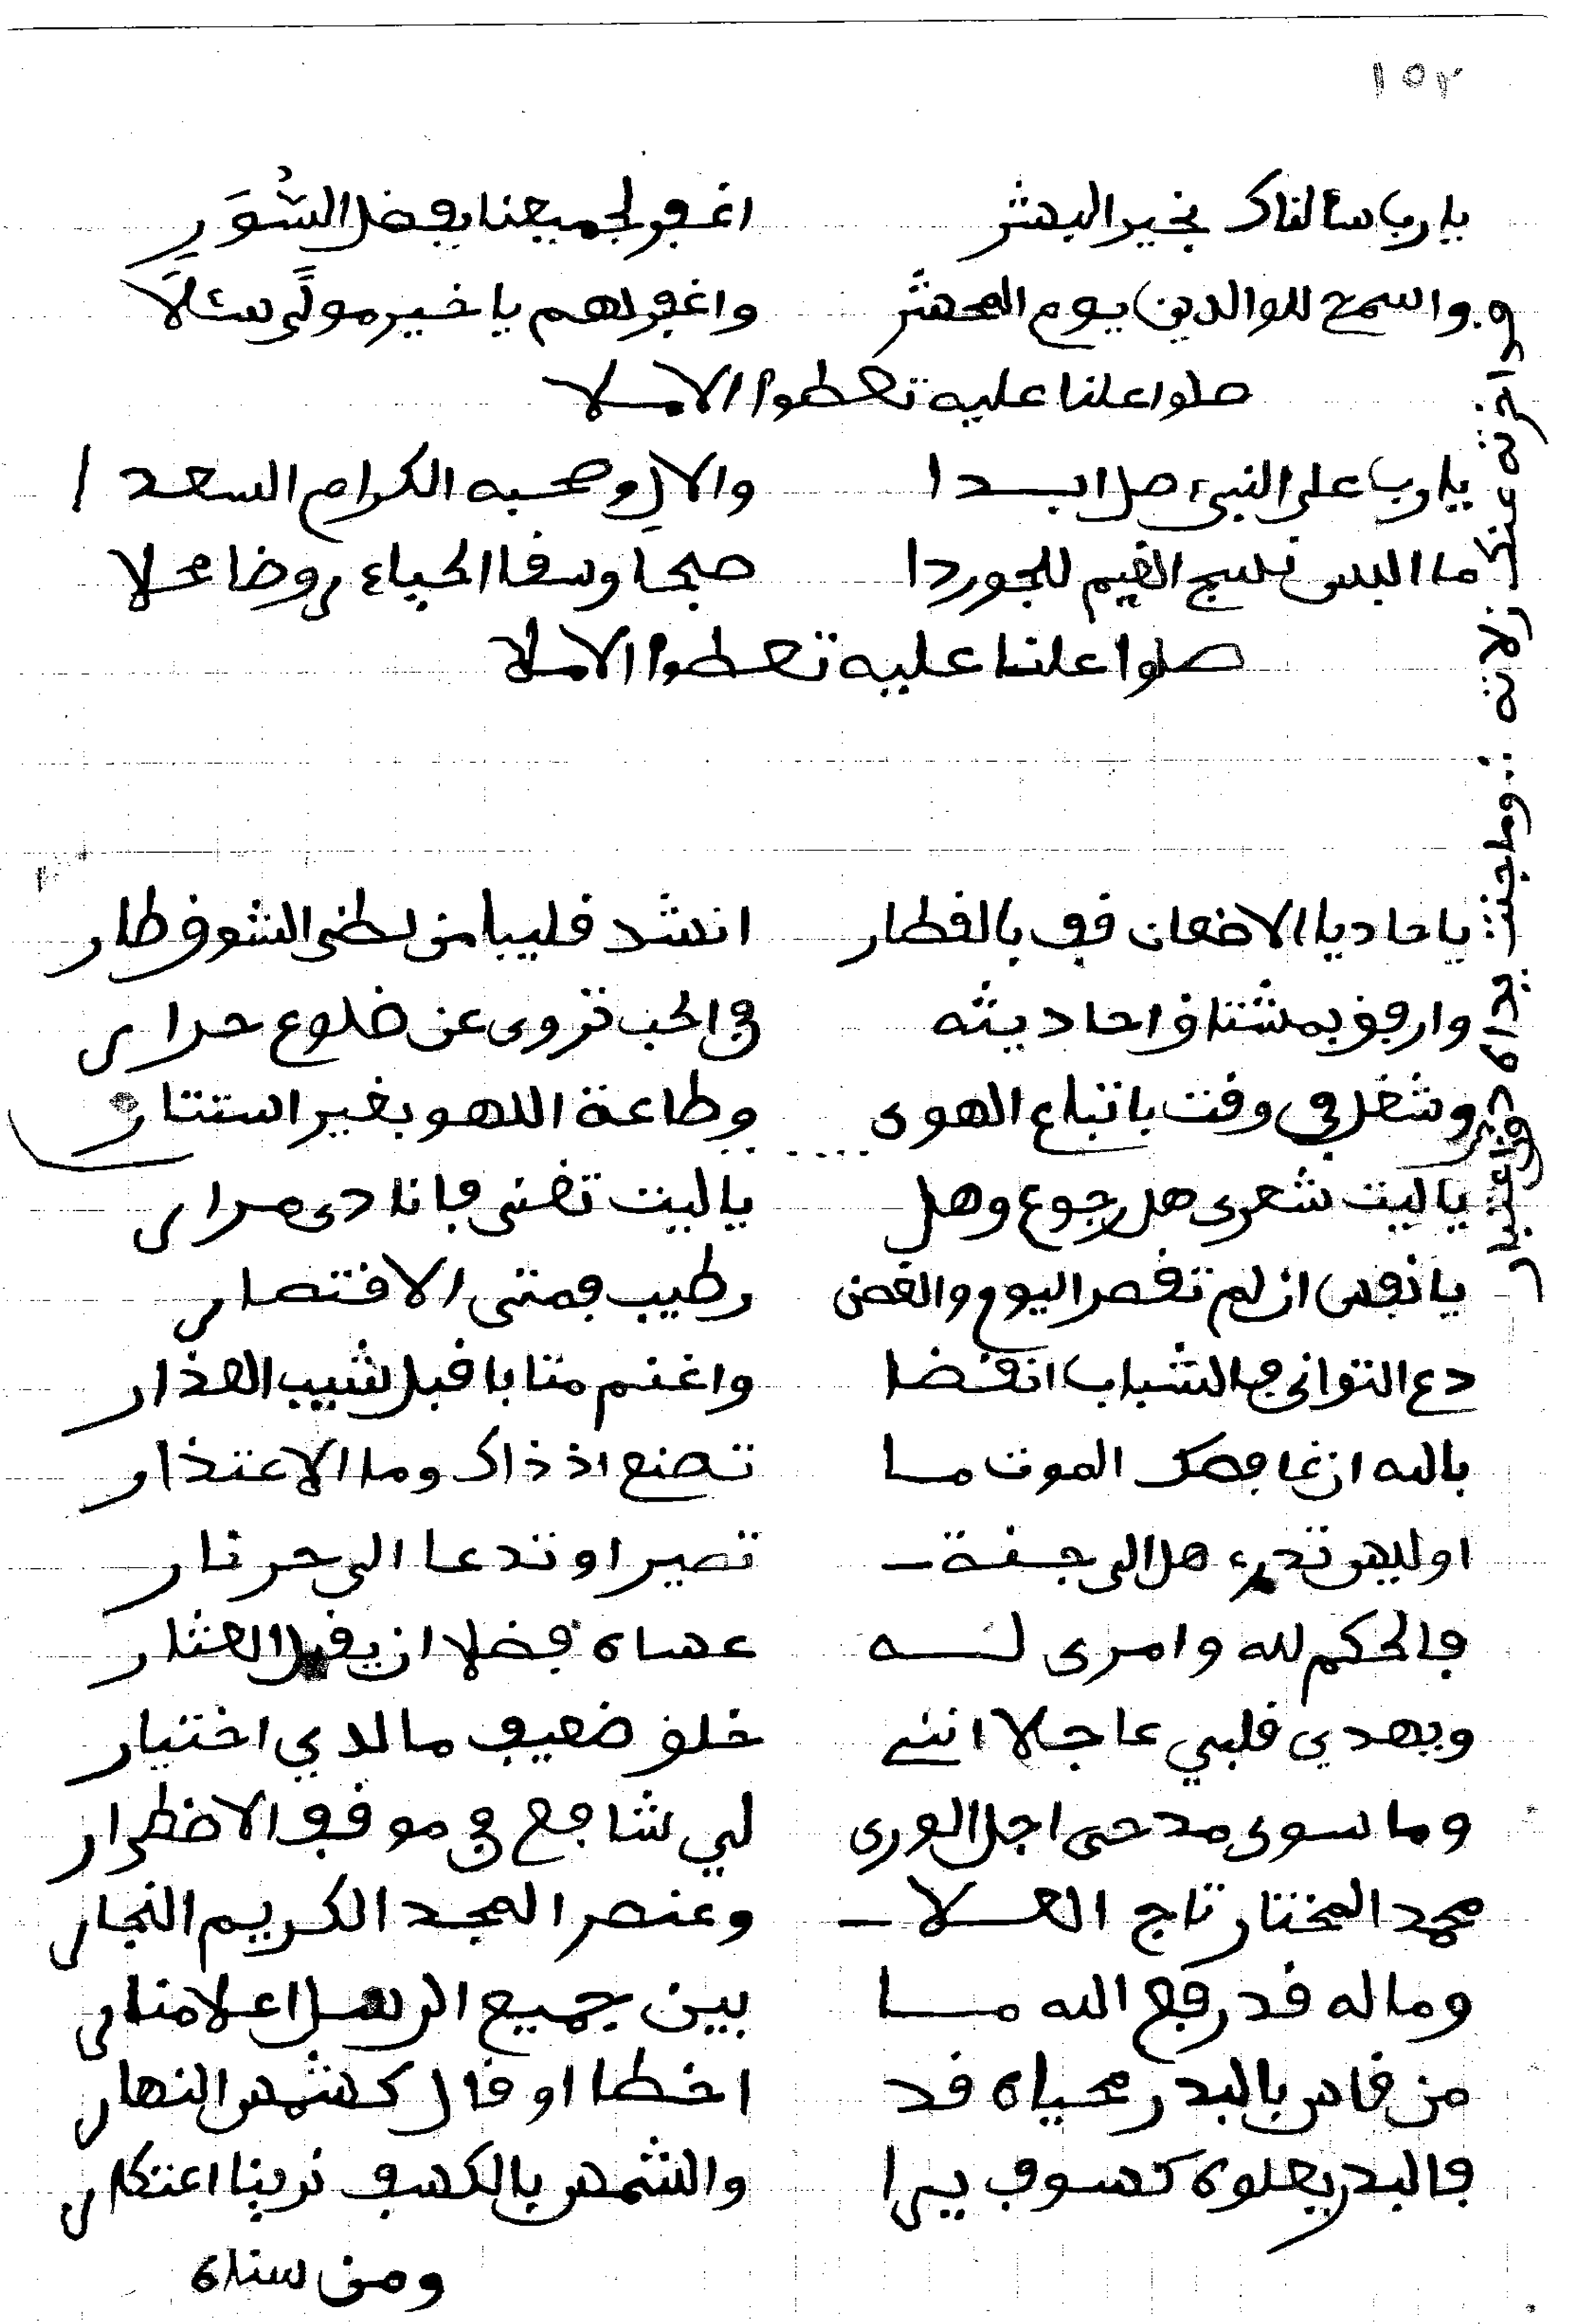 ١٥٢
يا رب سألناك بخير البشر اغفر لجميعنا بفضل السُّوَرِ
واسمح للوالدين يوم المحشر واغفر لهم يا خير مولًى سئلَا
صلوا علنا عليه تعطوا الاملا
يا رب على النبيء صل ابدا والآلِ وصحبه الكرام السعدا
ما البس نسج الغيم للجو ردا صبحا وسقا الحياء روضا محلا
صلوا علنا عليه تعطوا الاملا
يا حاديا الاضعان قف بالقطار انشد قليبا من لظى الشوق طار
وارفق بمشتاق احاديثه في الحب تروى عن ضلوع حرار
وشغل في وقت باتباع الهوى وطاعة اللهو بغير استتار
يا ليت شعري هل رجوع وهل يا ليت تغنى فانادى مرار
يا نفس ان لم تقصر اليوم والغصن رطيب فمتى الاقتصار
دع التوانى فالشباب انقضا واغنم متابا قبل شيب العذار
بالله ان غافصك الموت ما تصنع اذ ذاك وما الاعتذار
او ليس تدرء هل الى جنة تصير او تدعا الى حر نار
فالحكم لله وامرى له عساه فضلا ان يقيل العثار
ويهدي قلبي عاجلا اننى خلق ضعيف ما لدي اختيار
وما سوى مدحى اجل الورى لي شافع في موقف الاضطرار
محمد المختار تاج العلا وعنصر المجد الكريم النجار
وما له قد رفع الله ما بين جميع الرسل اعلا منار
من قاس بالبدر محياه قد اخطا او قال كشمس النهار
فالبدر يعلوه كسوف يرا والشمس بالكسف نرينا اعتكار
ومن سناه
واخرته عند زلاته .. وما جنت يداه دون اعتبار